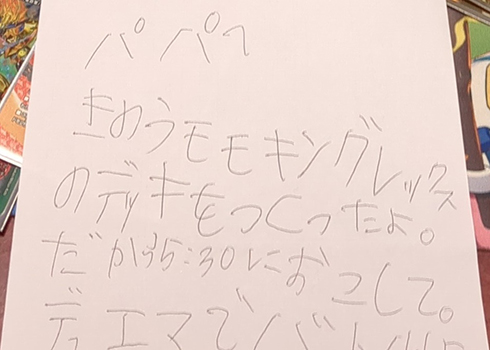 パパへ
きのうモモキングレックス
のデッキもつくったよ。
だから5:30におこして。
デュエマでバトル